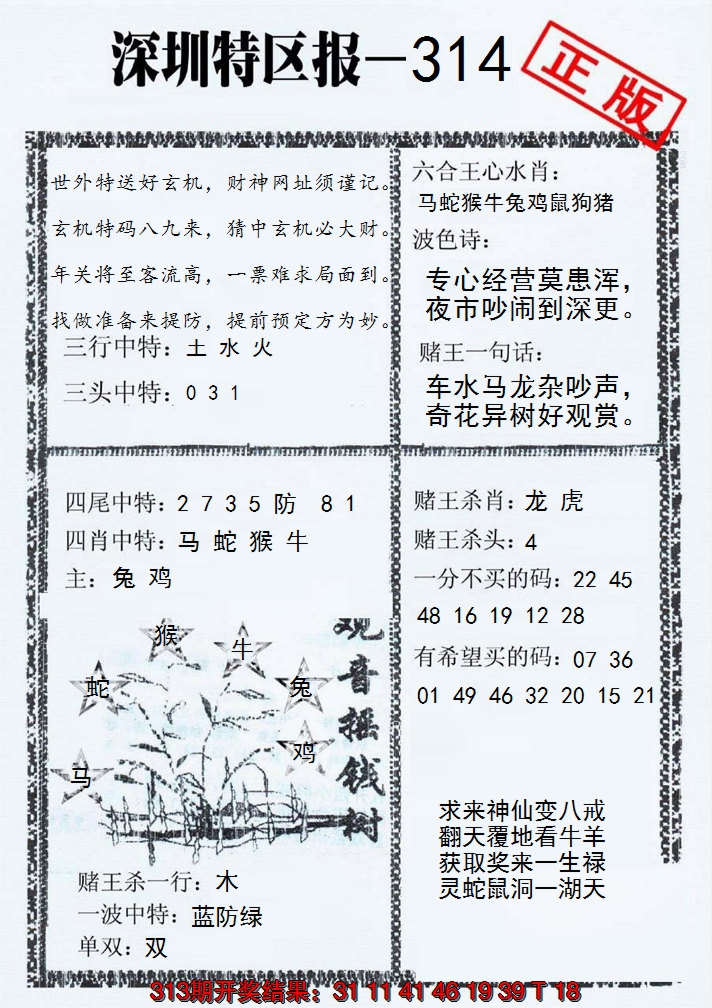 深圳特区报-314
正版
世外特送好玄机，财神网址须谨记。
玄机特码八九来，猜中玄机必大财。
年关将至客流高，一票难求局面到。
找做准备来提防，提前预定方为妙。
三行中特：土 水 火
三头中特：0 3 1
六合王心水肖：
马蛇猴牛兔鸡鼠狗猪
波色诗：
专心经营莫患浑，
夜市吵闹到深更。
赌王一句话：
车水马龙杂吵声，
奇花异树好观赏。
四尾中特：2 7 3 5 防 8 1
四肖中特：马 蛇 猴 牛
主：兔 鸡
猴
牛
蛇
兔
鸡
马
观音摇钱树
赌王杀一行：木
一波中特：蓝防绿
单双：双
赌王杀肖：龙 虎
赌王杀头：4
一分不买的码：22 45
48 16 19 12 28
有希望买的码：07 36
01 49 46 32 20 15 21
求来神仙变八戒
翻天覆地看牛羊
获取奖来一生禄
灵蛇鼠洞一湖天
313期开奖结果：31 11 41 46 19 39 T 18